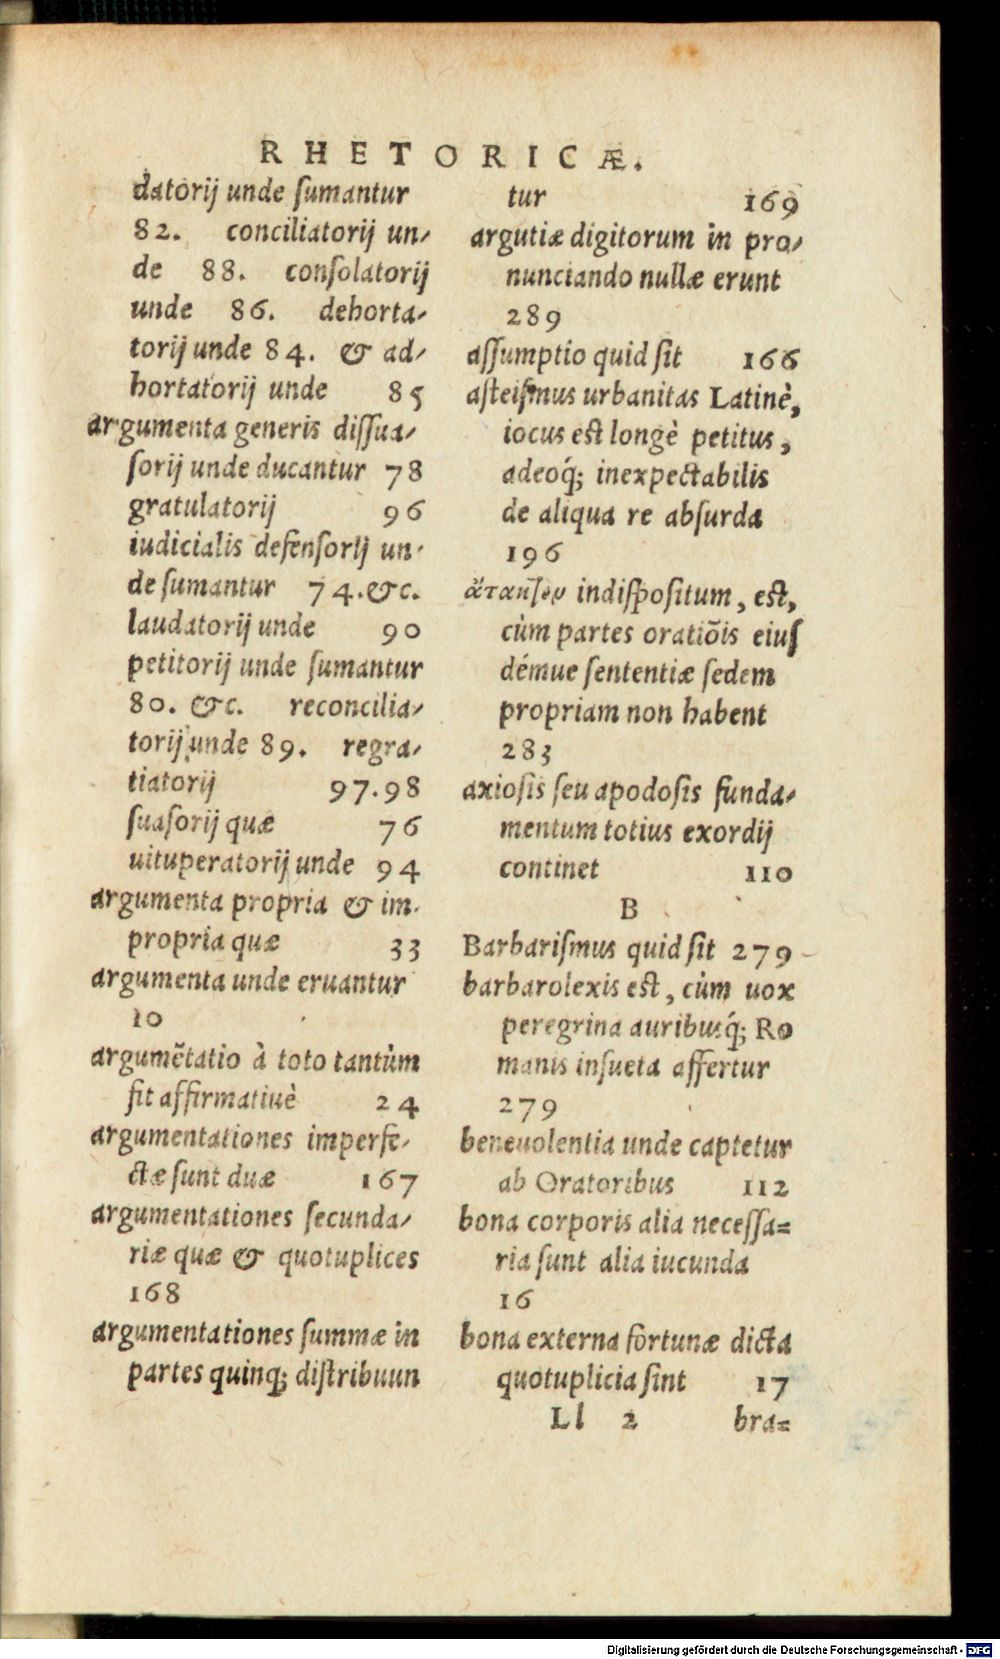 RHETORICÆ.
datorij unde ſumantur
82. conciliatorij un-
de 88. conſolatorij
unde 86. dehorta-
torij unde 84. & ad-
hortatorij unde 85
argumenta generis diſſua-
ſorij unde ducantur 78
gratulatorij 96
iudicialis defenſorij un-
de ſumantur 74.&c.
laudatorij unde 90
petitorij unde ſumantur
80. &c. reconcilia-
torij unde 89. regra-
tiatorij 97.98
ſuaſorij quæ 76
uituperatorij unde 94
argumenta propria & im-
propria quæ 33
argumenta unde eruantur
10
argumẽtatio à toto tantùm
fit affirmatiuè 24
argumentationes imperfe-
ctæ sunt duæ 167
argumentationes ſecunda-
riæ quæ & quotuplices
168
argumentationes ſummæ in
partes quinq; diſtribuun
tur 169
argutiæ digitorum in pro-
nunciando nullæ erunt
289
aſſumptio quid ſit 166
aſteiſmus urbanitas Latinè,
iocus est longè petitus,
adeoq́; inexpectabilis
de aliqua re abſurda
196
ἄτακτον indiſpoſitum, est,
cùm partes oratiõis eiuſ
démue ſententiæ ſedem
propriam non habent
283
axioſis ſeu apodoſis funda-
mentum totius exordij
continet 110
B
Barbariſmus quid ſit 279
barbarolexis est, cùm uox
peregrina auribusq́; Ro
manis inſueta affertur
279
beneuolentia unde captetur
ab Oratoribus 112
bona corporis alia neceſſa=
ria ſunt alia iucunda
16
bona externa fortunæ dicta
quotuplicia ſint 17
Ll 2 bra=
Digitalisierung gefördert durch die Deutsche Forschungsgemeinschaft - DFG